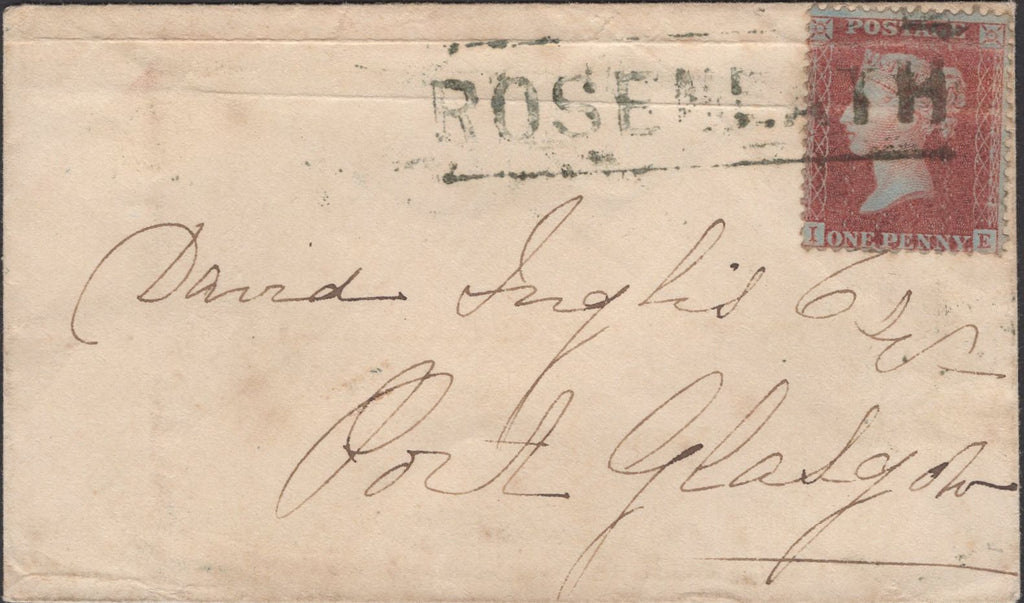 POSTAGE
ROSENEATH
I ONE PENNY E
David Inglis Esqr
Port Glasgow